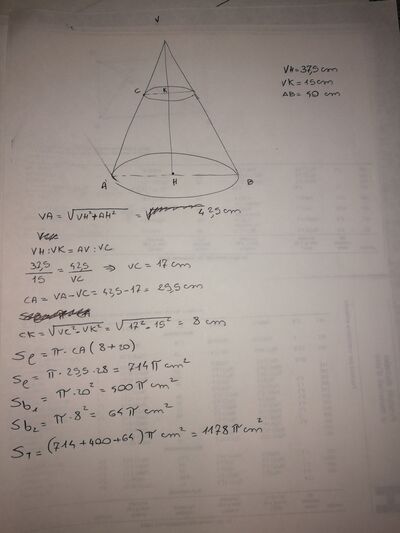 V
VH=37,5 cm
VK = 15 cm
AB = 40 cm
C K
A H B
VA = √VH²+AH² = 42,5 cm
VH:VK = AV:VC
37,5/15 = 42,5/VC ⇒ VC = 17 cm
CA = VA-VC = 42,5-17 = 25,5 cm
CK = √VC²-VK² = √17²-15² = 8 cm
Sℓ = π·CA(8+20)
Sℓ = π·25,5·28 = 714π cm²
Sb₁ = π·20² = 400π cm²
Sb₂ = π·8² = 64π cm²
S_T = (714+400+64)π cm² = 1178π cm²